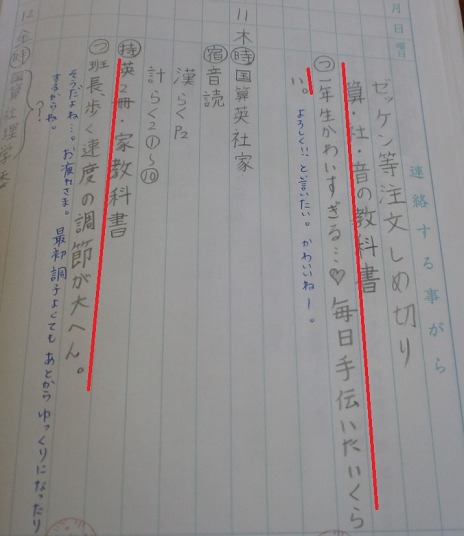 月 日 曜
連絡する事がら
ゼッケン等注文しめ切り
算・社・音の教科書
㋡一年生かわいすぎる…♡毎日手伝いたいくら
い。よろしく!!と言いたい。かわいいねー。
11 木 時 国算英社家
宿 音読
漢らくP2
計らく2①~⑩
持 英2冊・家教科書
㋡班長、歩く速度の調節が大へん。
そうだよね…。お疲れさま。最初調子よくてもあとからゆっくりになったり
するからね。
12 金 時 国算社理学
?